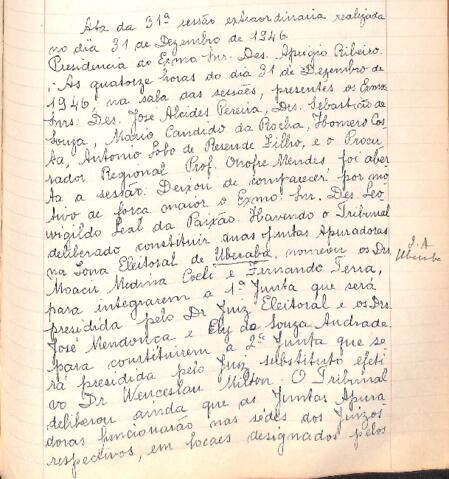 Ata da 31ª sessão extraordinaria realizada
no dia 31 de Dezembro de 1946.
Presidencia do Exmo Snr. Des. Aprigio Ribeiro.
As quatorze horas do dia 31 de Dezembro de
1946, na sala das sessões, presentes os Exmos
Snrs: Des. José Alcides Pereira, Drs. Sebastião de
Souza, Mário Candido da Rocha, Homero Cos-
ta, Antonio Lobo de Resende Filho, e o Procu-
rador Regional Prof. Onofre Mendes foi aber-
ta a sessão. Deixou de comparecer por mo-
tivo de força maior o Exmo. Snr. Des. Leo-
vigildo Leal da Paixão. Havendo o Tribunal
deliberado constituir duas Juntas Apuradoras
na Zona Eleitoral de Uberaba, nomeou os Drs
J. A
Uberaba
Moacir Medina Coeli e Fernando Terra,
para integrarem a 1ª Junta que será
presidida pelo Dr Juiz Eleitoral e os Drs.
José Mendonça e Ely de Souza Andrade
para constituirem a 2ª Junta que se-
rá presidida pelo Juiz substituto efeti-
vo Dr Wenceslau Milton. O Tribunal
deliberou ainda que as Juntas Apura
doras funcionarão nas sédes dos Juizos
respectivos, em locaes designados pelos